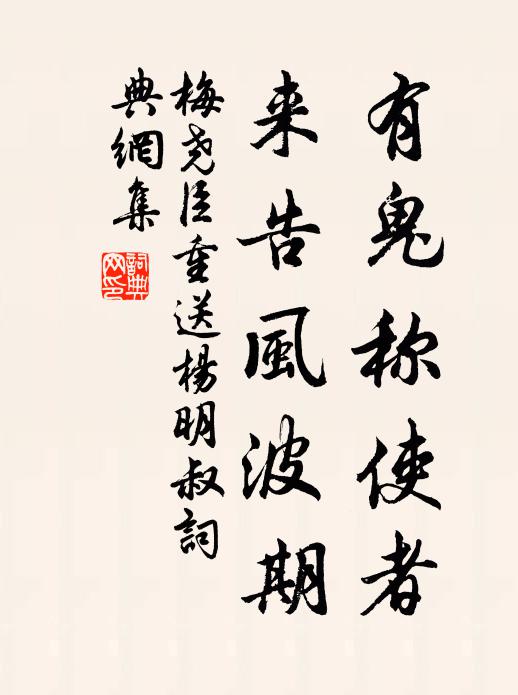 有鬼称使者
来告風波期
梅尧臣重送楊明叔詞
典網集
詞典网印